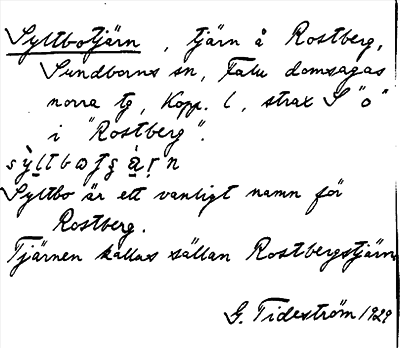 Syltbotjärn, tjärn å Rostberg,
Sundborns sn, Falu domsagas
norra tg, Kopp. l, strax S "o"
i "Rostberg".
Syltbo är ett vanligt namn för
Rostberg.
Tjärnen kallas sällan Rostbergstjärn
G. Tideström 1929